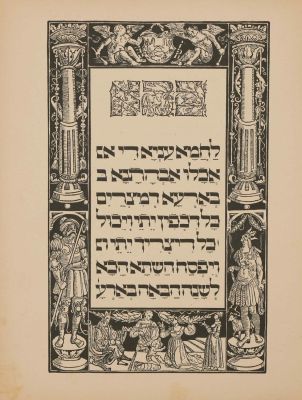 כהא
לחמא עניא די אכ
אכלו אבהתנא ב
בארעא דמצרים
כל דכפין ייתי וייכול
כל דיצריך ייתי וי
ויפסח השתא הכא
לשנה הבאה בארע